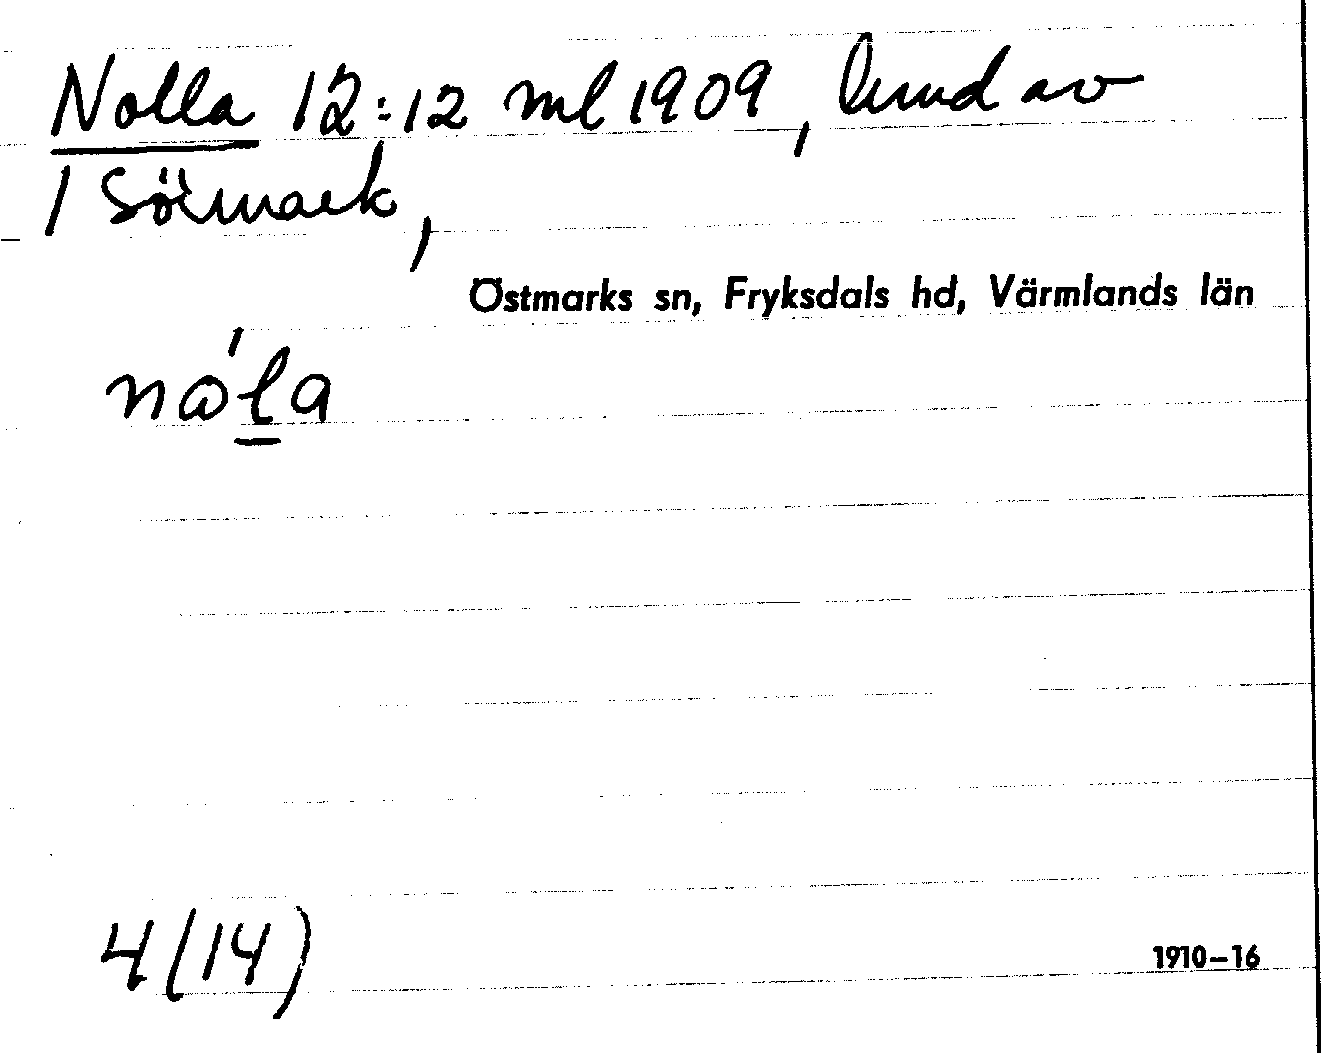 Nolla 12:12 ml 1909, lund av
1 Sörmark,
Östmarks sn, Fryksdals hd, Värmlands län
nώla
4(14)
1910-16